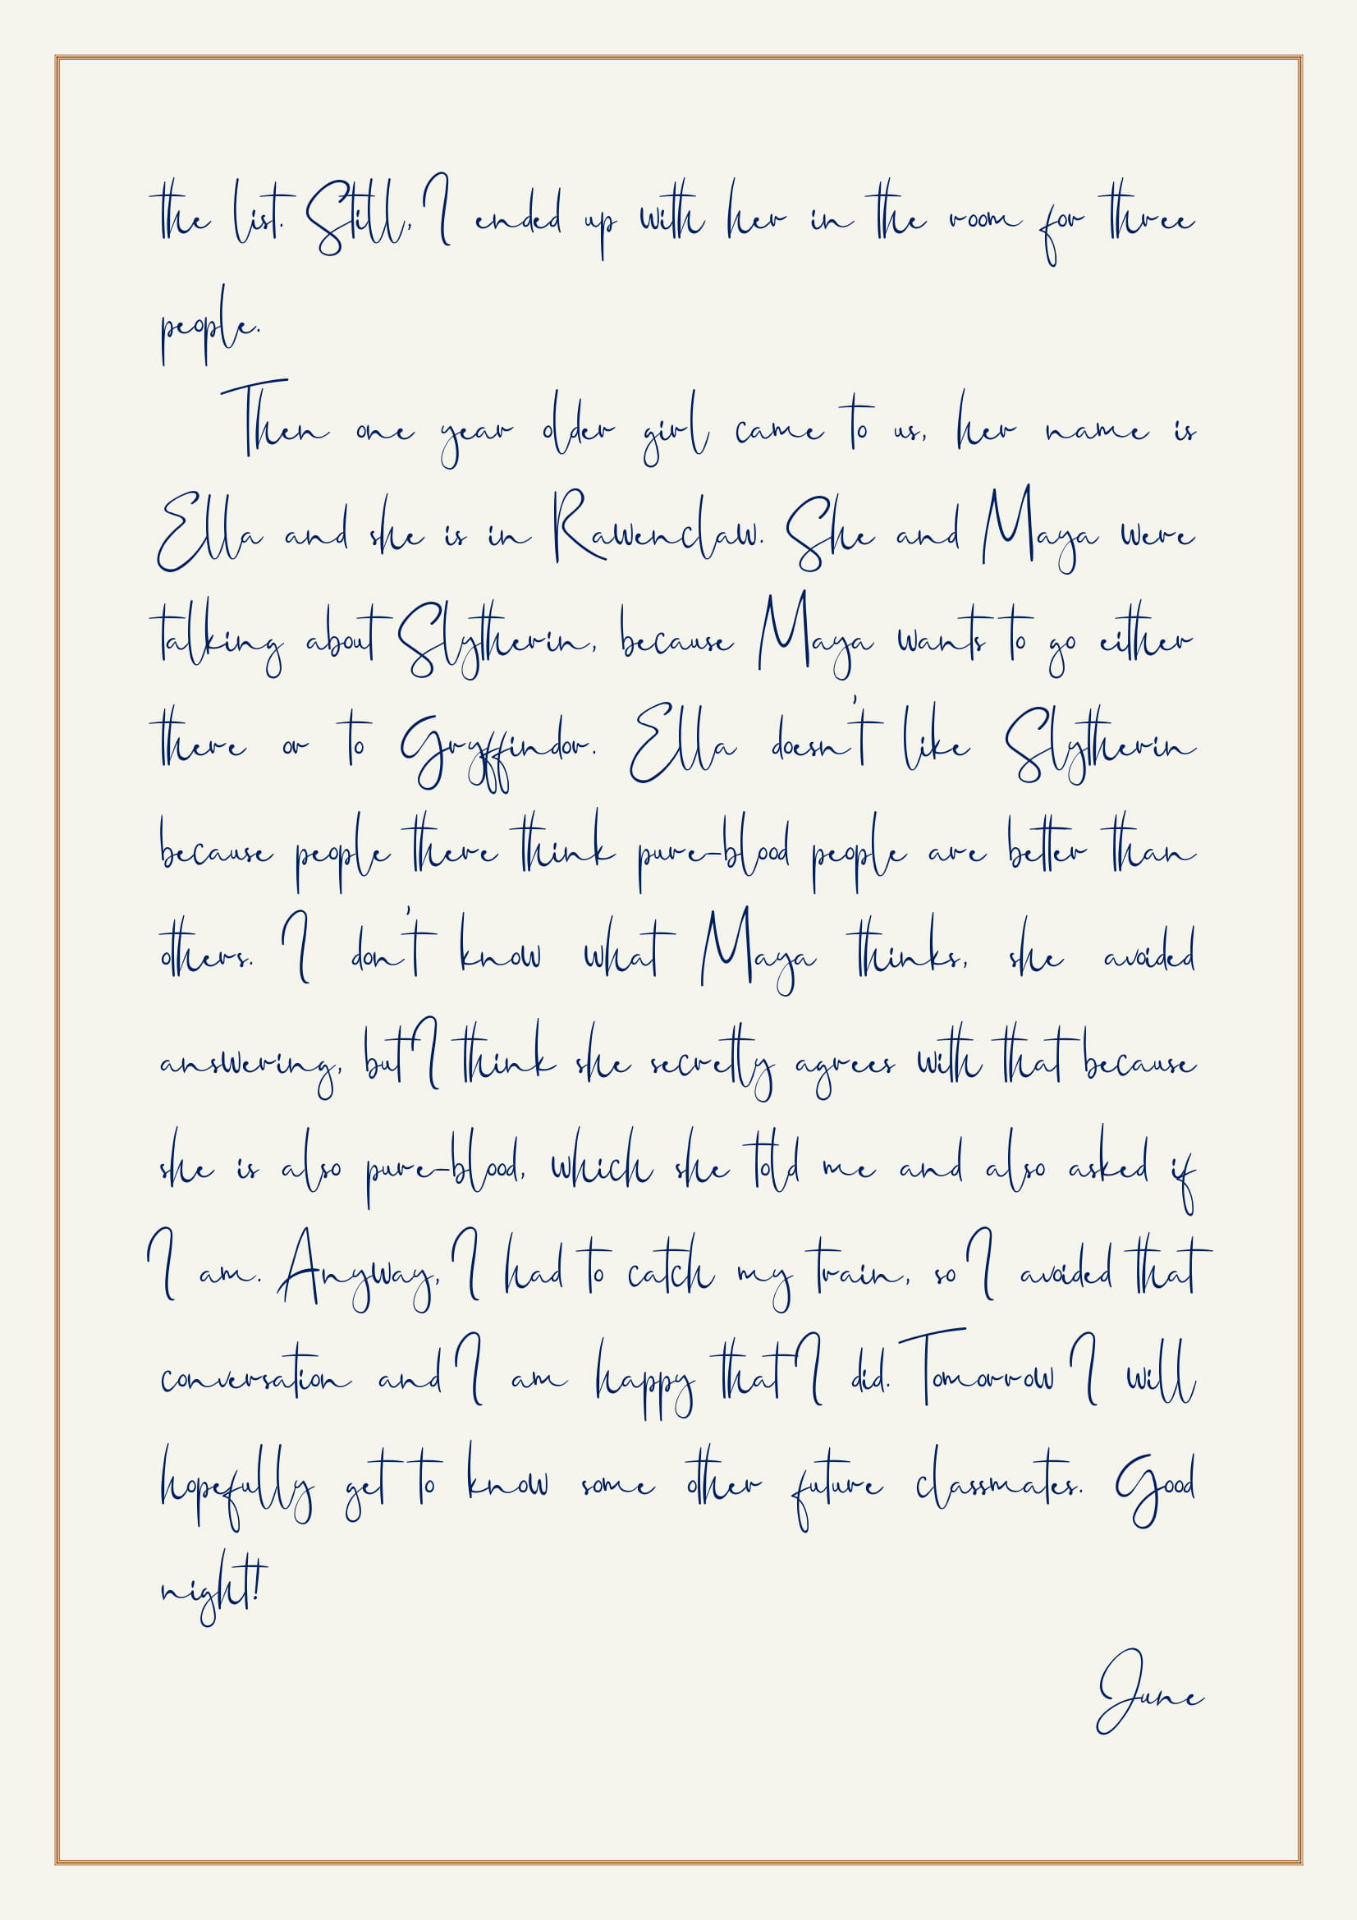 the list. Still, I ended up with her in the room for three
people.
Then one year older girl came to us, her name is
Ella and she is in Rawenclaw. She and Maya were
talking about Slytherin, because Maya wants to go either
there or to Gryffindor. Ella doesn't like Slytherin
because people there think pure-blood people are better than
others. I don't know what Maya thinks, she avoided
answering, but I think she secretly agrees with that because
she is also pure-blood, which she told me and also asked if
I am. Anyway, I had to catch my train, so I avoided that
conversation and I am happy that I did. Tomorrow I will
hopefully get to know some other future classmates. Good
night!
June